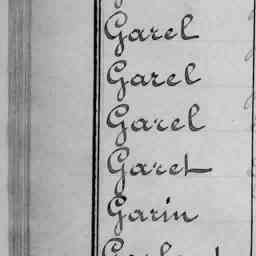 Garel
Garel
Garel
Garet
Garin